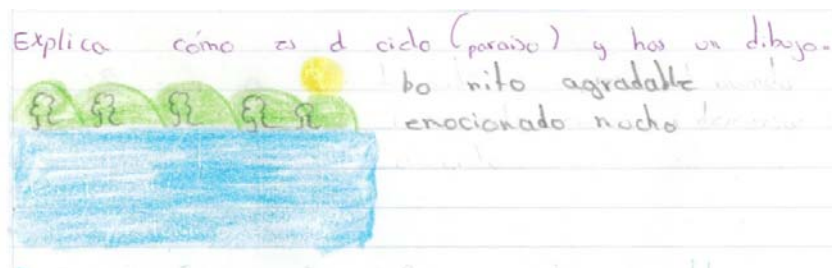 Explica cómo es el cielo (paraiso) y has un dibujo.
bo nito agradable
emocionado mucho